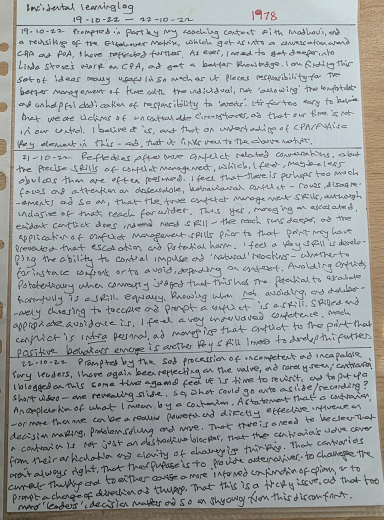 Incidental learning log
19-10-22 – 22-10-22 1978
19-10-22 Prompted in part by my coaching contact with Madhavi, and
a revisiting of the Eisenhower Matrix, which got us into a conversation around
CPA and PVA, I have reflected further. As ever, I need to get deeper into
Linda Stone's work on CPA, and get a better knowledge. I am finding this
set of ideas many uses in so much as it places responsibility for the
better management of time with the individual, not 'allowing' the
and unhelpful dedication of responsibility to 'events'. It is far too easy to believe
that we are victims of uncontrollable circumstances, and that our time is not
in our control. I believe it is, and that an understanding of CPA/PVA is a
key element in this – and, that it links very to the above note.
21-10-22 Reflections after more conflict related conversations, about
the precise skills of conflict management, which, I feel, may be less
obvious than are often presumed. I feel that there is perhaps too much
focus and attention on discernable, behavioural conflict – rows, disagre-
-ements and so on, that the true conflict management skills, although
inclusive of that, reach far wider. Thus yes, managing an escalated,
evident conflict does indeed need skill – the reach runs deeper, as the
application of conflict management skills prior to that point may have
prevented that escalation and potential harm. I feel a key skill is develo-
ping the ability to control impulse and 'natural' reactions – whether to
for instance confront or to avoid, depending on context. Avoiding conflict,
potentially when correctly judged that this has the potential to escalate
harmfully is a skill. Equally, knowing when not avoiding, and deliber-
-ately choosing to and prompt a conflict is a skill. Skilled and
appropriate avoidance is, I feel a very undervalued competence. Much
conflict is intra personal, and managing that conflict to the point that
positive behaviours emerge is another key skill I need to develop this further.
22-10-22 Prompted by the sad procession of incompetent and incapable
Tory leaders, I have again been reflecting on the value, and rarely seen, contrarian
I blogged on this some time ago and feel it is time to revisit, and to put up a
short video – one revealing slide. So what could go onto a slide/recording?
An explanation of what I mean by a contrarian. A statement that a contrarian,
or more than one can be a really powerful and directly effective influence on
decision making, problem solving and more. That there is a need to be clear that
a contrarian is not just an obstructive blocker, that the contrarian's value comes
from their articulation and clarity of challenging thinking. That contrarians
aren't always right, that their purpose is to provide alternatives, to challenge the
current thinking and to either cause a more informed confirmation of opinion, or to
prompt a change of direction and thinking. That this is a tricky issue, and that too
many 'leaders', decision makers and so on shy away from this discomfort.